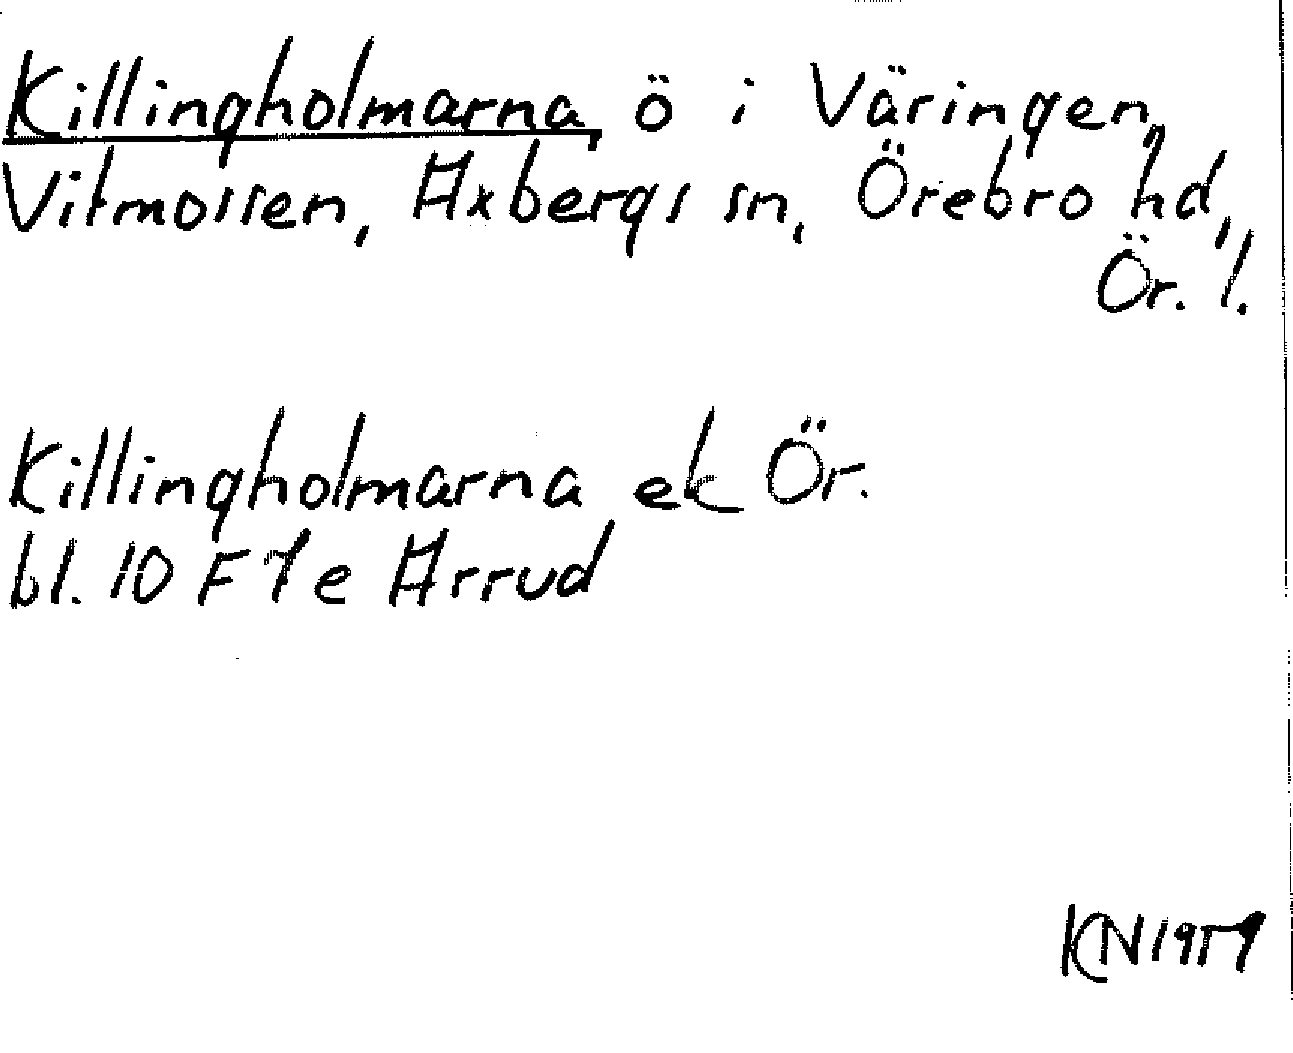 Killingholmarna, ö i Väringen,
Vitmossen, Axbergs sn, Örebro hd,
Ör. l.
Killingholmarna ek Ör.
bl. 10 F 7e Arrud
KN 1959